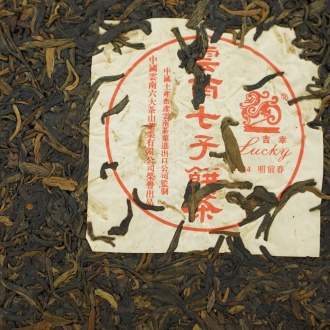 雲南七子餅茶
中國土產畜產雲南茶葉進出口公司監制
中國雲南六大茶山茶業有限公司榮譽出品
吉幸
Lucky
4 明前春